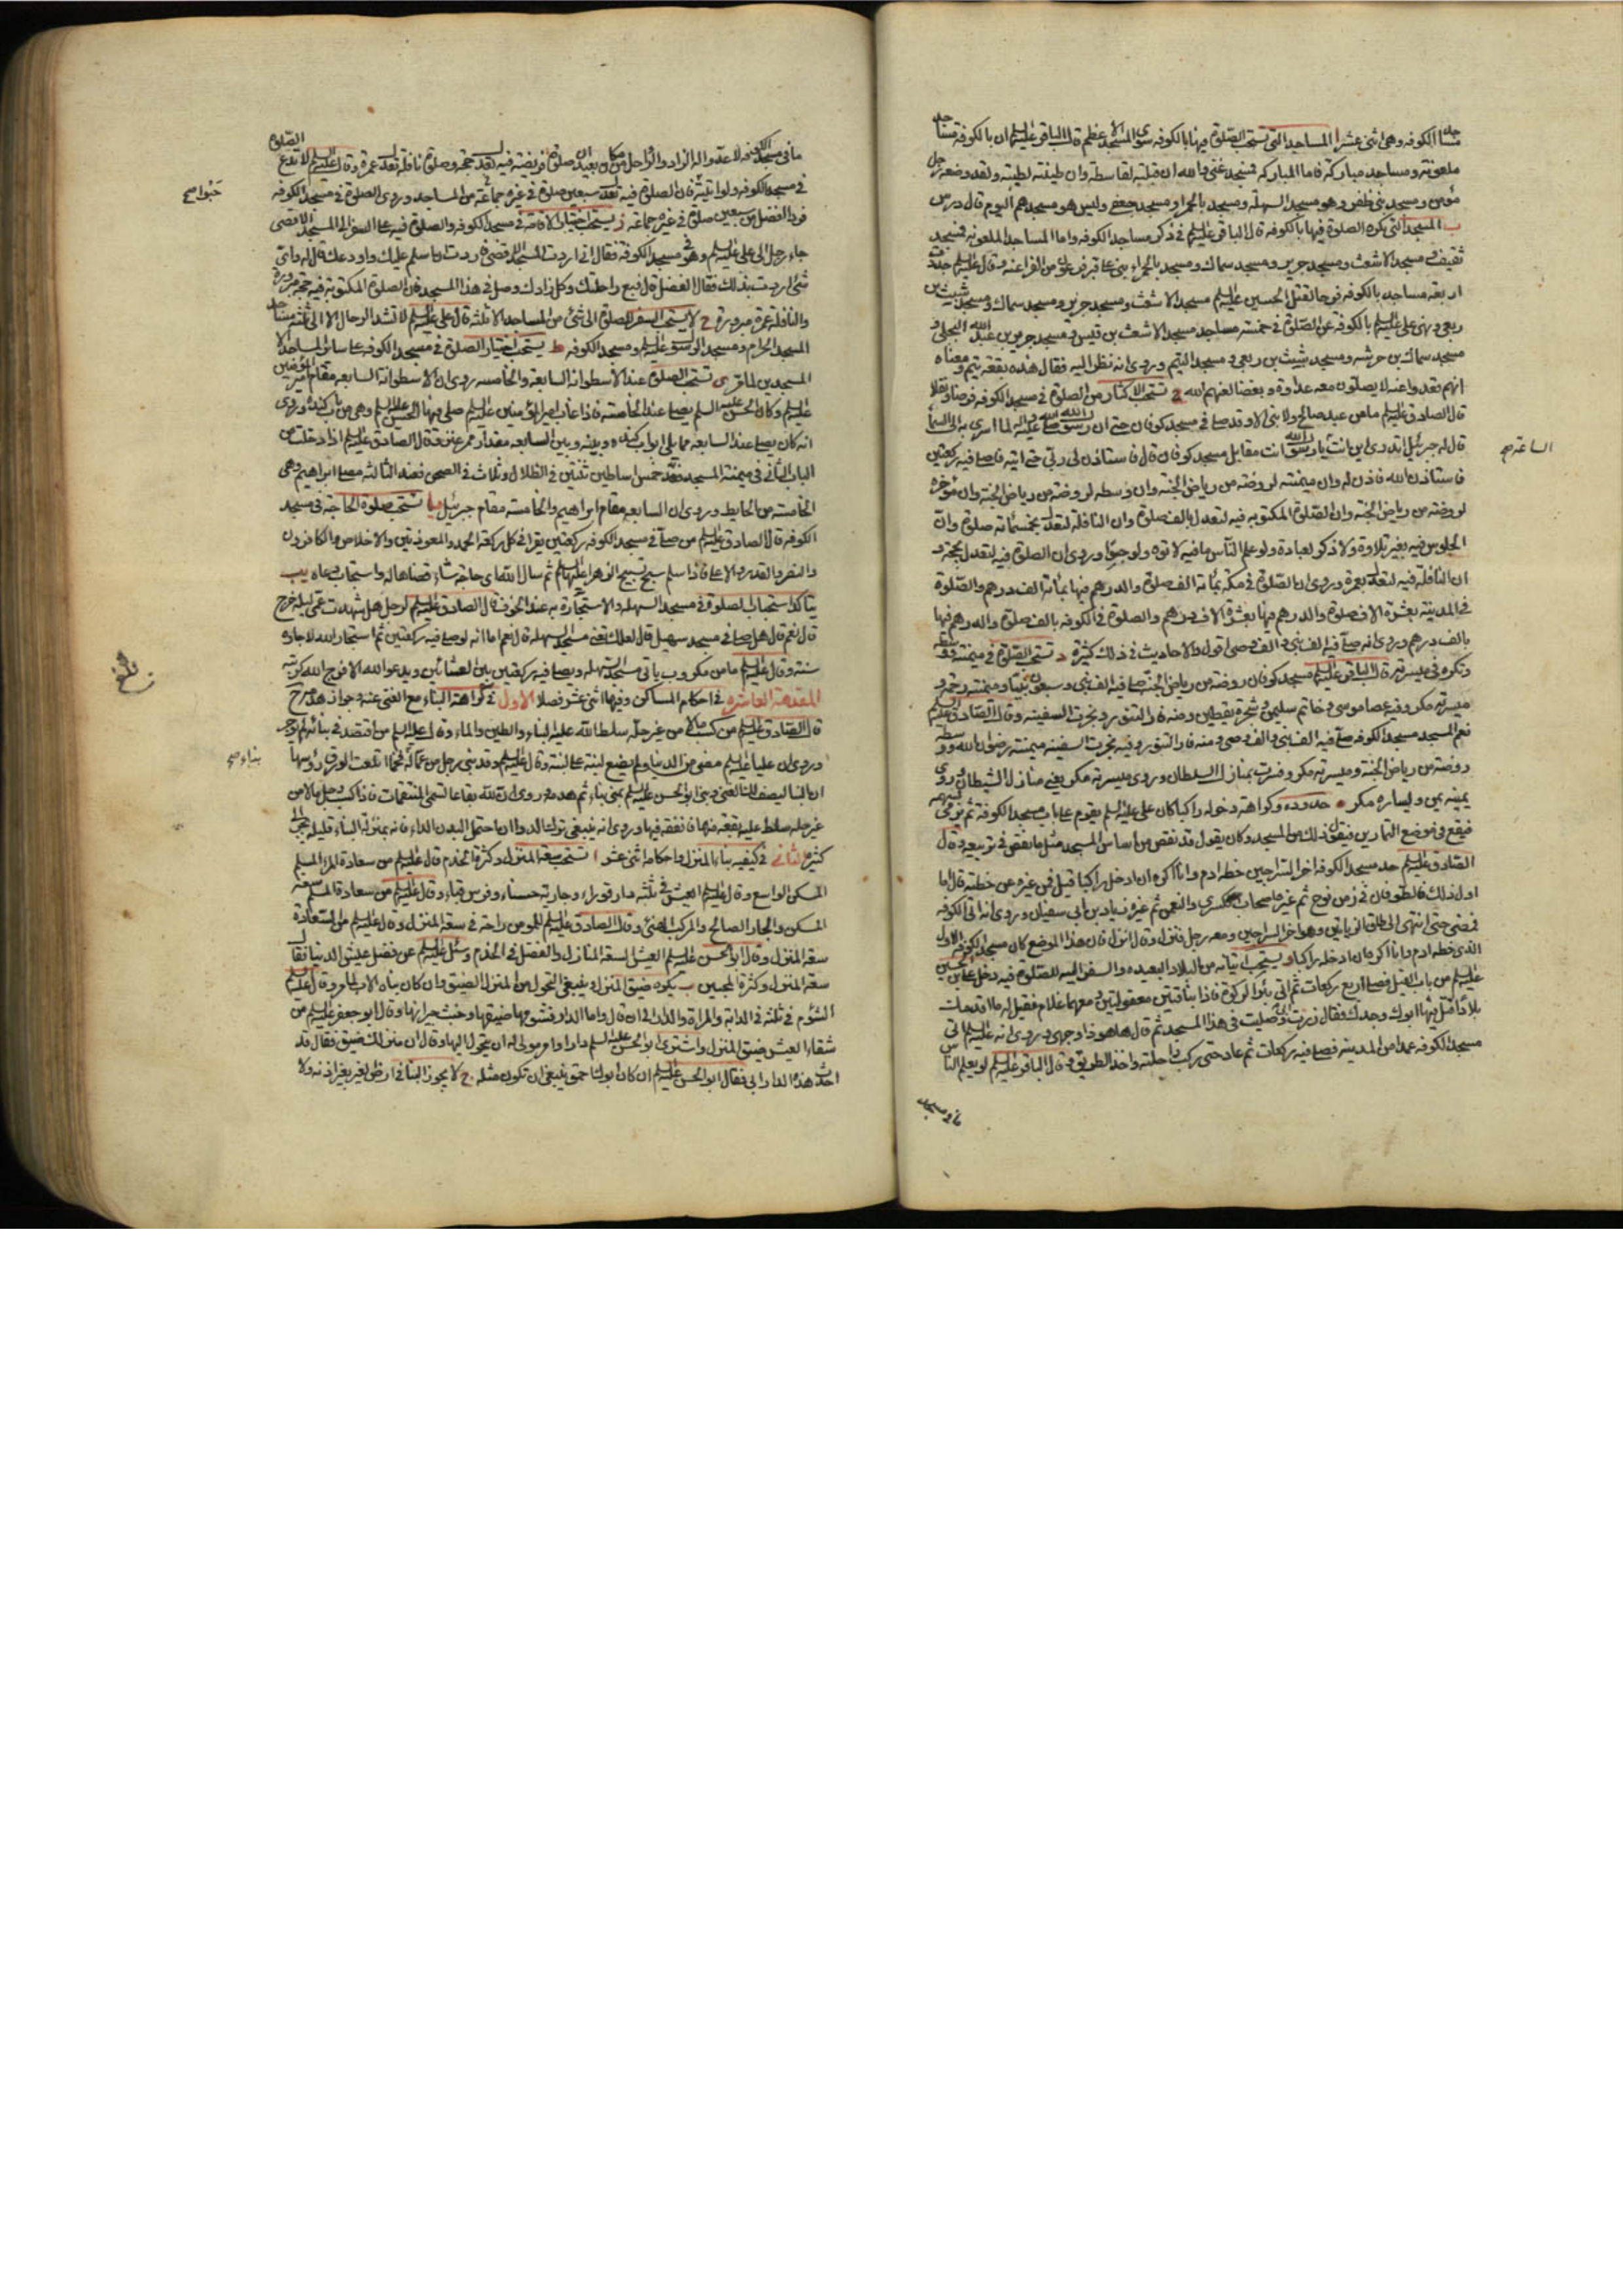 مساجد الكوفه وهى اثنى عشر ا المساجد التى تستحب الصلوة فيها بالكوفه سوى المسجد الاعظم قال الباقر عليه السلم ان بالكوفه مساجد
ملعونه ومساجد مباركة فاما المباركة فمسجد غنى والله ان قبلته لقاسطه وان طينته لطيبه ولقد وضعه رجل
مؤمن ومسجد بنى ظفر وهو مسجد السهله ومسجد بالحمرا ومسجد جعفى وليس هو مسجدهم اليوم قال درس
ب المسجد التى يكره الصلوة فيها بالكوفه قال الباقر عليه السلم فى ذكر مساجد الكوفه واما المساجد الملعونه فمسجد
ثقيف ومسجد الاشعث ومسجد جرير ومسجد سماك ومسجد بالحمراء بنى على قبر فرعون من الفراعنه وقال عليه السلم جددت
اربعه مساجد بالكوفه فرحا لقتل الحسين عليه السلم مسجد الاشعث ومسجد جرير ومسجد سماك ومسجد شبث بن
ربعى ونهى على عليه السلم بالكوفه عن الصلوة فى خمسه مساجد مسجد الاشعث بن قيس ومسجد جرير بن عبد الله البجلى و
مسجد سماك بن خرشه ومسجد شبث بن ربعى ومسجد التيم وروى انه نظر اليه فقال هذه بقعه تيم ومعناه
انهم قعدوا عنه لا يصلون معه عداوة وبغضا لعنهم الله ج تستحب الاكثار من الصلوة فى مسجد الكوفه فرضا ونفلا
قال الصادق عليه السلم ما من عبد صالح ولا نبى الا وقد صلى فى مسجد كوفان حتى ان رسول الله صلى الله عليه واله لما اسرى به الى السما
قال له جبرئيل اتدرى اين انت يا رسول الله انت مقابل مسجد كوفان قال فاستاذن لى ربى حتى اتيه فاصلى فيه ركعتين
الساعة صح
فاستاذن الله فاذن له وان ميمنته لروضه من رياض الجنه وان وسطه لروضه من رياض الجنه وان مؤخره
لروضه من رياض الجنه وان الصلوة المكتوبه فيه لتعدل بالف صلوة وان النافلة لتعدل بخمسمائه صلوة وان
الجلوس فيه بغير تلاوة ولا ذكر لعبادة ولو علم الناس ما فيه لاتوه ولو حبوا وروى ان الصلوة فيه لتعدل بحجه و
ان النافلة فيه لتعدل بعمرة وروى ان الصلوة فى مكه بمائه الف صلوة والدرهم فيها بمائه الف درهم والصلوة
فى المدينه بعشرة الاف صلوة والدرهم فيها بعشرة الاف درهم والصلوة فى الكوفه بالف صلوة والدرهم فيها
بالف درهم وروى انه صلى فيه الف نبى والف وصى اقول والاحاديث فى ذلك كثيرة د تستحب الصلوة فى ميمنته ووسطه
وتكره فى ميسرته قال الباقر عليه السلم مسجد كوفان روضه من رياض الجنه صلى فيه الف نبى وسبعون نبيا وميمنته رحمه و
ميسرته مكر وفيه عصا موسى وخاتم سليمن وشجرة يقطين ومنه فار التنور ونجرت السفينه وقال الصادق عليه السلم
نعم المسجد مسجد الكوفه صلى فيه الف نبى والف وصى ومنه فار التنور وفيه نجرت السفينه ميمنته رضوان الله ووسطه
روضه من رياض الجنه وميسرته مكر وفسرت بمنازل السلطان وروى ميسرته مكر يعنى منازل الشيطان وروى
يمينه يمن ويساره مكر ه حدوده وكراهة دخوله راكبا كان على عليه السلم يقوم على باب مسجد الكوفة ثم يرمى بسهمه
فيقع فى موضع التمارين فيقول ذلك من المسجد وكان يقول قد نقص من اساس المسجد مثل ما نقص فى تربيعه وقال
الصادق عليه السلم حد مسجد الكوفه اخر السراجين خطه ادم وانا اكره ان ادخله راكبا قيل فمن غيره عن خطته قال اما
اول ذلك فالطوفان فى زمن نوح ثم غيره اصحاب كسرى والنعمن ثم غيره زياد بن ابى سفيان وروى انه اتى الكوفه
فمضى حتى انتهى الى طاق الزياتين وهو اخر السراجين ومعه رجل فنزل وقال انزل فان هذا الموضع كان مسجد الكوفه الاول
الذى خطه ادم وانا اكره ان ادخله راكبا و يستحب اتيانه من البلاد البعيده والسفر اليه للصلوة فيه دخل على بن الحسين
عليه السلم من باب الفيل فصلى اربع ركعات ثم اتى بئر الركوة فاذا بناقتين معقولتين ومعهما غلام فقيل له ما اقدمك
بلادا قتل فيها ابوك وجدك فقال زرت ابى وصليت فى هذا المسجد ثم قال ها هو ذا وجهى وروى انه عليه السلم اتى
مسجد الكوفه عمدا من المدينه فصلى فيه ركعات ثم عاد حتى ركب راحلته واخذ الطريق وقال الباقر عليه السلم لو يعلم الناس
ما فى مسجد
ما فى مسجد الكوفه لاعدوا له الزاد والرواحل من مكان بعيد ان صلوة فريضه فيه لتعدل حجه وصلوة نافلة تعدل عمرة وقال عليه السلم لا تدع الصلوة
فى مسجد الكوفه ولو اتيته فان الصلوة فيه تعدل سبعين صلوة فى غيره جماعه من المساجد وروى الصلوة فى مسجد الكوفه
حبوا صح
فردا افضل من سبعين صلوة فى غيره جماعه ز يستحب اختيار الاقامه فى مسجد الكوفه والصلوة فيه على السفر الى المسجد الاقصى
جاء رجل الى على عليه السلم وهو فى مسجد الكوفه فقال انى اردت المسجد الاقصى فاردت ان اسلم عليك واودعك قال له واى
شئ اردت بذلك فقال الفضل قال فبع راحلتك وكل زادك وصل فى هذا المسجد فان الصلوة المكتوبه فيه حجه مبرورة
والنافلة عمرة مبرورة ح لا يستحب السفر للصلوة الى شئ من المساجد الا ثلثه قال على عليه السلم لا تشد الرحال الا الى ثلثه مساجد
المسجد الحرام ومسجد الرسول عليه السلم ومسجد الكوفه ط يستحب اختيار الصلوة فى مسجد الكوفه على سائر المساجد الا
المسجدين لما مر ى تستحب الصلوة عند الاسطوانه السابعه والخامسه روى ان الاسطوانه السابعه مقام امير المؤمنين
عليه السلم وكان الحسن عليه السلم يصلى عند الخامسه فاذا غاب امير المؤمنين عليه السلم صلى فيها الحسن عليه السلم وهى من باب كنده وروى
انه كان يصلى عند السابعه مما يلى ابواب كنده وبينه وبين السابعه مقدار ممر عنز قال الصادق عليه السلم اذا دخلت من
الباب الثانى فى ميمنه المسجد فعد خمس اساطين ثنتين فى الظلال وثلاث فى الصحن فعند الثالثه مصلى ابراهيم وهى
الخامسه من الحايط وروى ان السابعه مقام ابراهيم والخامسه مقام جبرئيل يا تستحب صلوة الحاجه فى مسجد
الكوفه قال الصادق عليه السلم من صلى فى مسجد الكوفه ركعتين يقرا فى كل ركعه الحمد والمعوذتين والاخلاص والكافرون
والنصر والقدر والاعلى فاذا سلم سبح تسبيح الزهرا عليها السلم ثم سال الله اى حاجه شاء قضاها له واستجاب دعاه يب
يتاكد استحباب الصلوة فى مسجد السهله والاستجارة به عند الخوف قال الصادق عليه السلم لرجل هل شهدت عمى ليله خرج
قال نعم قال هل صلى فى مسجد سهيل قال لعلك تعنى مسجد السهله قال نعم اما انه لو صلى فيه ركعتين ثم استجار الله لاجاره
سنه وقال عليه السلم ما من مكروب ياتى مسجد السهله ويصلى فيه ركعتين بين العشائين ويدعو الله الا فرج الله كربته
بلغ
المقدمه العاشره فى احكام المساكن وفيها اثنى عشر فصلا الاول فى كراهة البناء مع الغنى عنه وجواز هدمه
قال الصادق عليه السلم من كسب مالا من غير حله سلط الله عليه البناء والطين والماء وقال عليه السلم من اقتصد فى بنائه لم يوجر
وروى ان عليا عليه السلم مضى من الدنيا ولم يضع لبنه على لبنه وقال عليه السلم وقد بنى رجل من عماله اطلعت الورق رؤسها
بناء صح
ان البنا ليصف لك الغنى وبنى ابو الحسن عليه السلم بمنى بناء ثم هدمه وروى ان لله بقاعا تسمى المنتقمات فاذا كسب رجل مالا من
غير حله سلط عليه بقعه منها فانفقه فيها وروى انه ينبغى ترك الدواء ما احتمل البدن الداء فانه بمنزله البناء قليله يجر الى
كثيره الثانى فى كيفيه بناء المنزل واحكامه اثنى عشر ا تستحب سعة المنزل وكثرة الخدم قال عليه السلم من سعادة المرء المسلم
المسكن الواسع وقال عليه السلم العيش فى ثلثه دار قوراء وجاريه حسناء وفرس قباء وقال عليه السلم من سعادة المسلم سعه
المسكن والجار الصالح والمركب الهنئ وقال الصادق عليه السلم للمومن راحه فى سعه المنزل وقال عليه السلم من السعادة
سعه المنزل وقال ابو الحسن عليه السلم العيش السعه المنازل والفضل فى الخدم وسئل عليه السلم عن فضل عيش الدنيا فقال
سعه المنزل وكثرة المحبين ب يكره ضيق المنزل وينبغى التحول من المنزل الضيق وان كان بناه الاب لما مر وقال عليه السلم
الشؤم فى ثلثه فى الدابه والمراة والدار الى ان قال واما الدار فشومها ضيقها وخبث جيرانها وقال ابو جعفر عليه السلم من
شقاء العيش ضيق المنزل واشترى ابو الحسن عليه السلم دارا وامر مولى له ان يتحول اليها وقال ان منزلك ضيق فقال قد
احدث هذه الدار ابى فقال ابو الحسن عليه السلم ان كان ابوك احمق ينبغى ان تكون مثله ج لا يجوز البنا فى ارض الغير بغير اذنه ولا